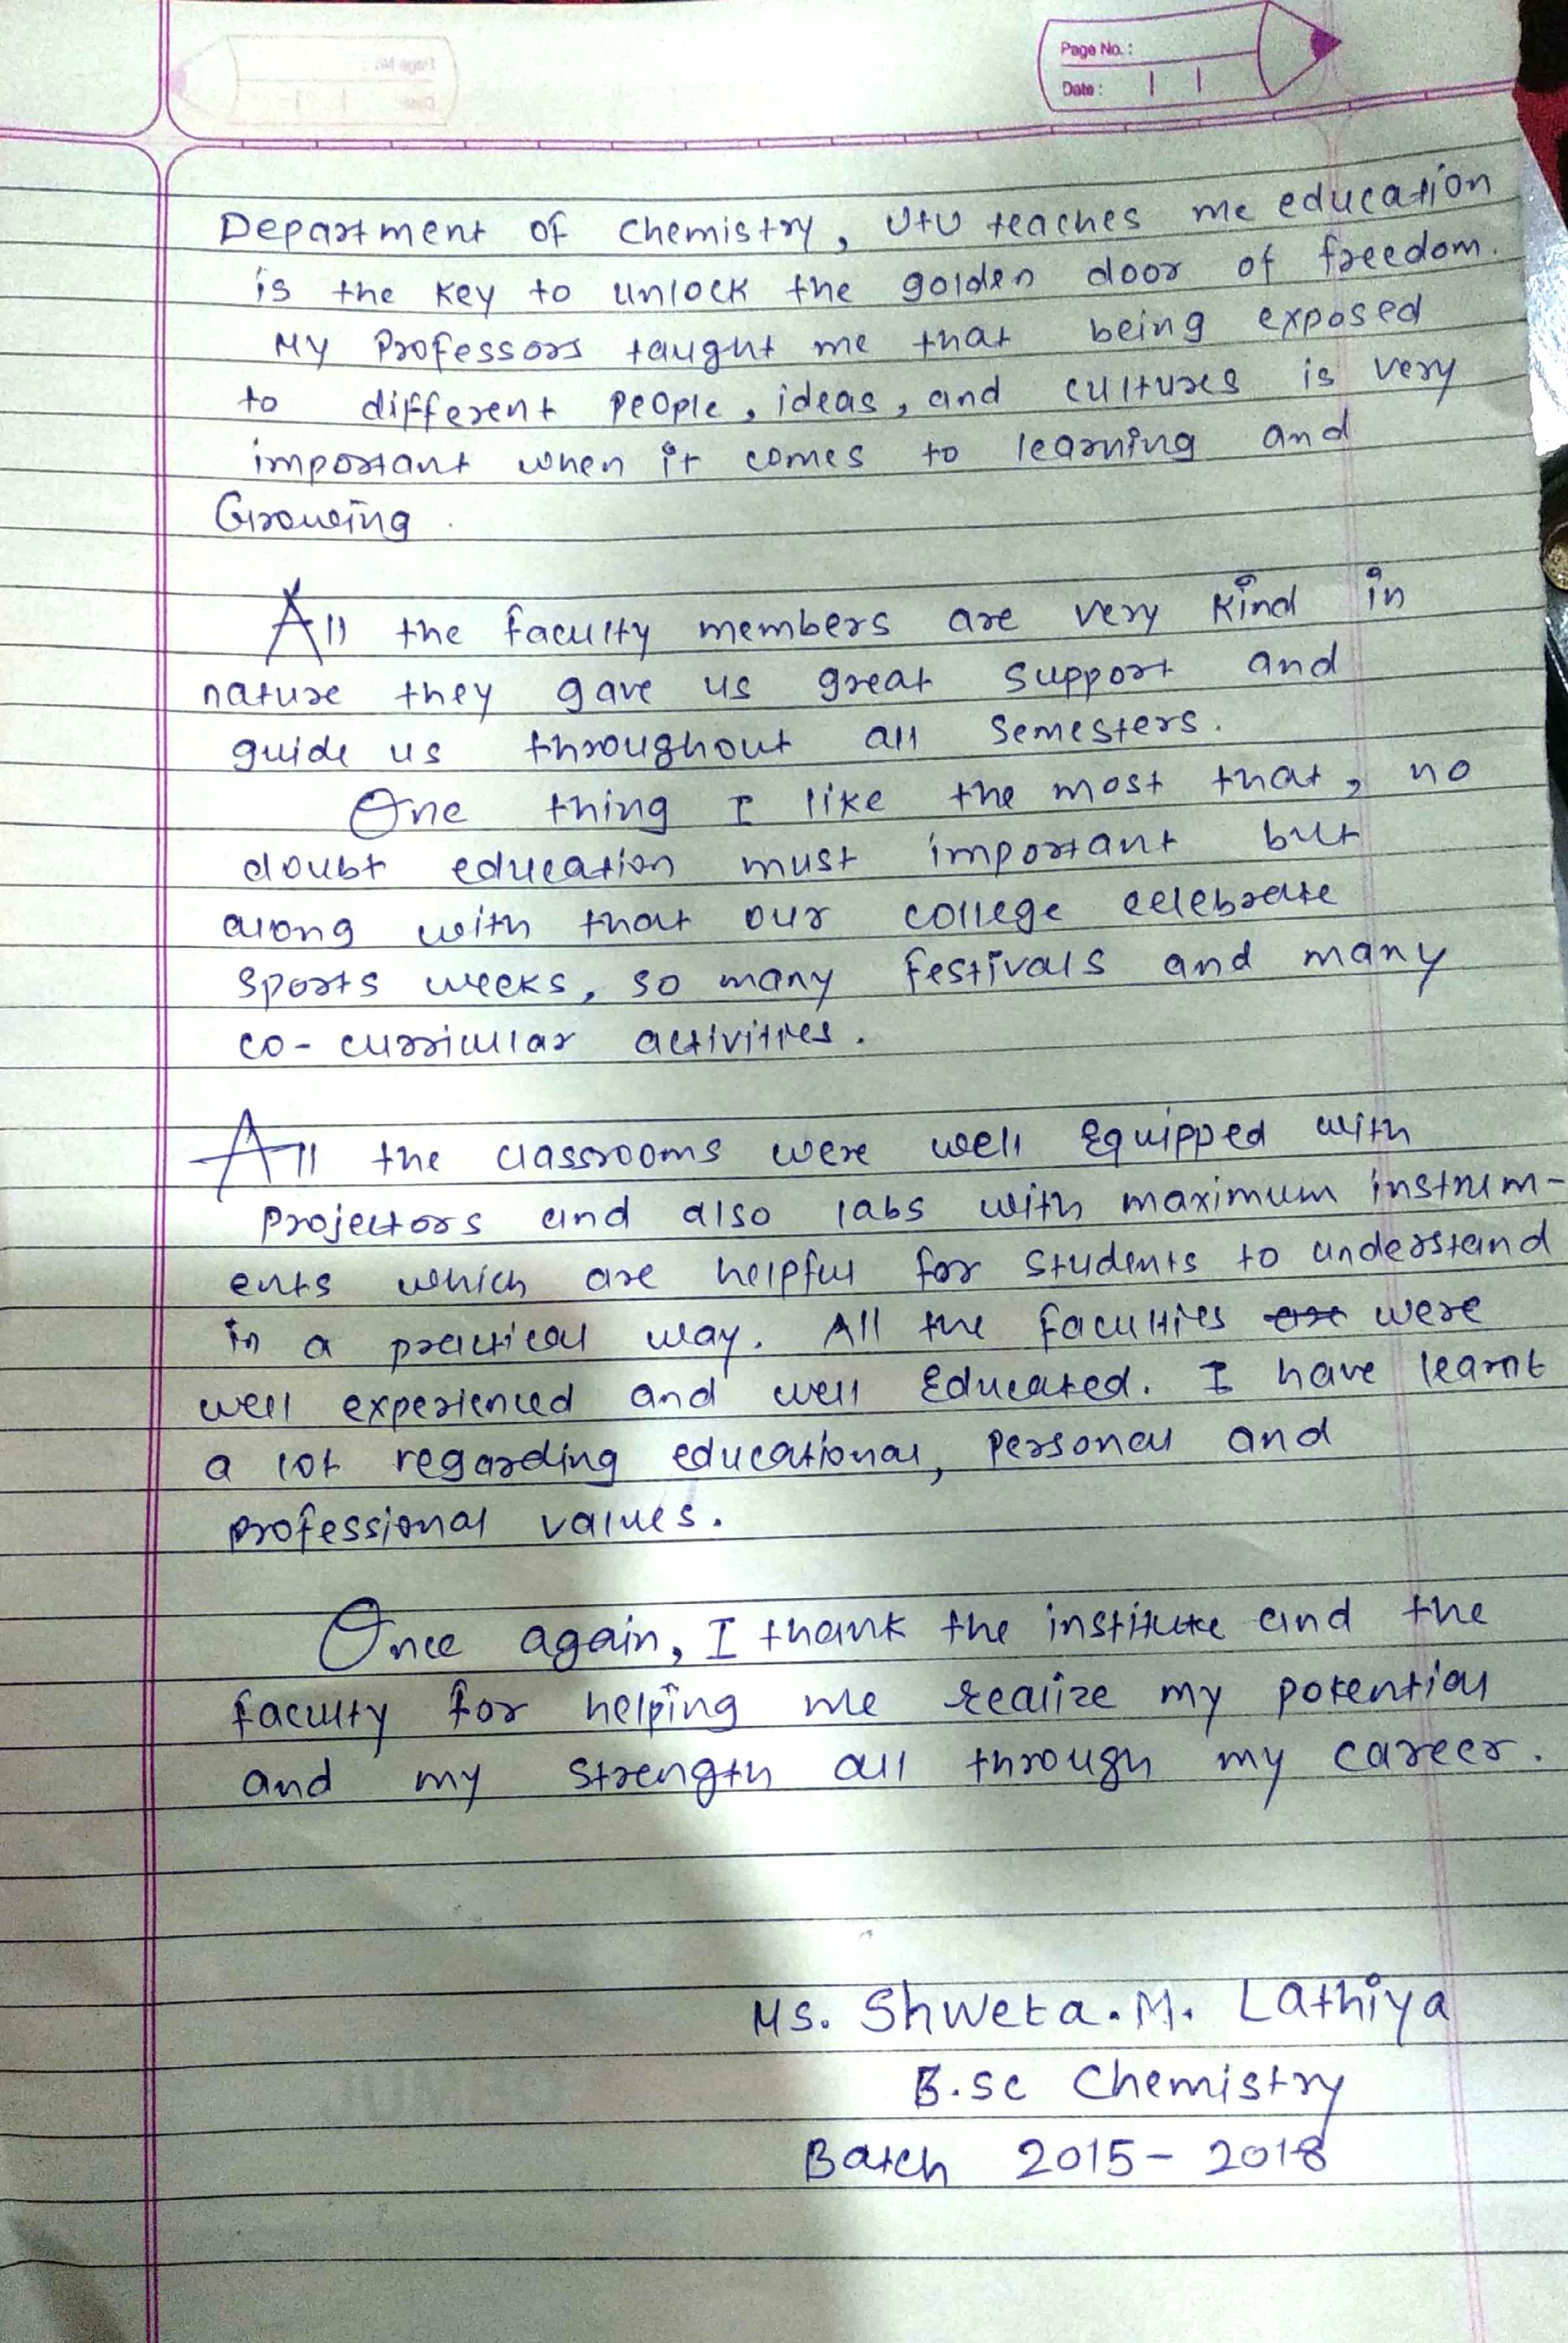 Page No. :
Date :
Department of Chemistry, UTU teaches me education
is the key to unlock the golden door of freedom.
My Professors taught me that being exposed
to different people, ideas, and cultures is very
important when it comes to learning and
Growing.
All the faculty members are very kind in
nature they gave us great support and
guide us throughout all semesters.
One thing I like the most that, no
doubt education must important but
along with that our college celebrate
sports weeks, so many festivals and many
co-curricular activities.
All the classrooms were well Equipped with
projectors and also labs with maximum instrum-
ents which are helpful for students to understand
in a practical way. All the faculties are were
well experienced and well Educated. I have learnt
a lot regarding educational, personal and
professional values.
Once again, I thank the institute and the
faculty for helping me realize my potential
and my strength all through my career.
Ms. Shweta. M. Lathiya
B.sc Chemistry
Batch 2015-2018